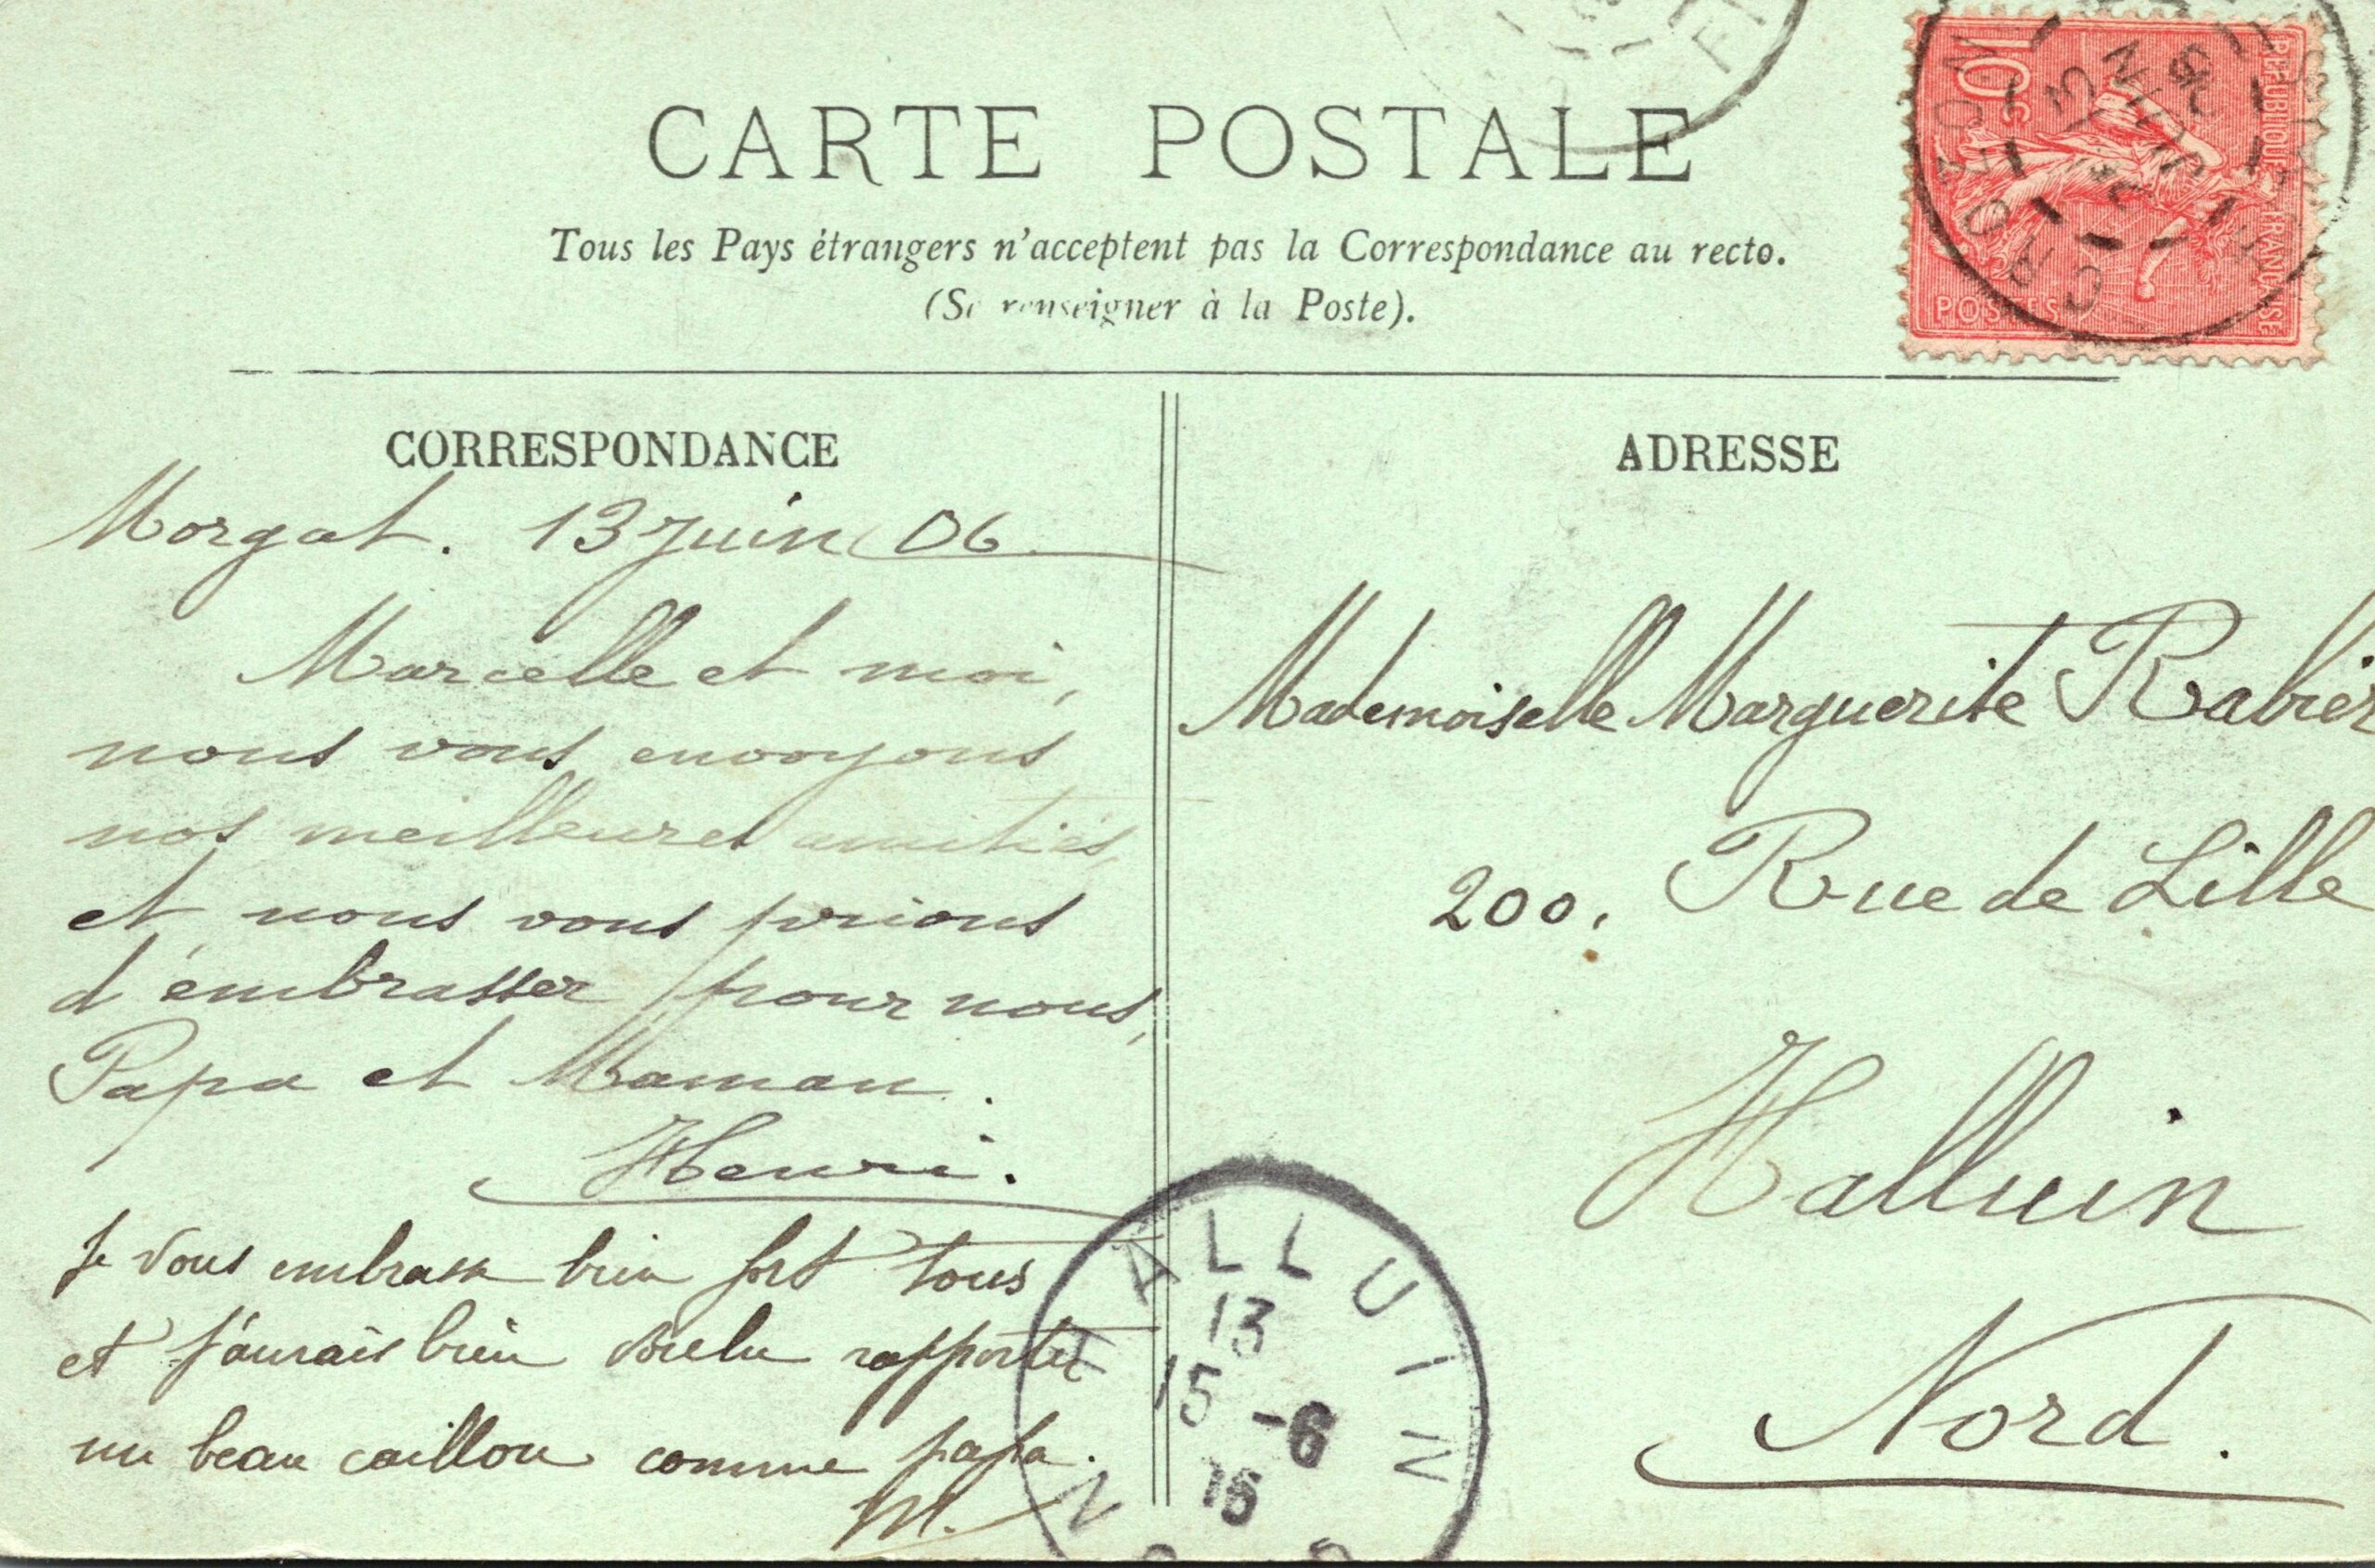 CARTE POSTALE
Tous les Pays étrangers n'acceptent pas la Correspondance au recto.
(Se renseigner à la Poste).
10c
REPUBLIQUE FRANÇAISE
POSTES
CROZON
13 JUIN 06
CORRESPONDANCE
Morgat. 13 Juin 06
Marcelle et moi,
nous vous envoyons
nos meilleures amitiés,
et nous vous prions
d'embrasser pour nous,
Papa et Maman.
Henri.
Je vous embrasse bien fort tous
et j'aurais bien voulu rapporter
un beau caillou comme papa.
M.
ADRESSE
Mademoiselle Marguerite Rabier
200, Rue de Lille
Halluin
Nord.
HALLUIN
13
15 -6